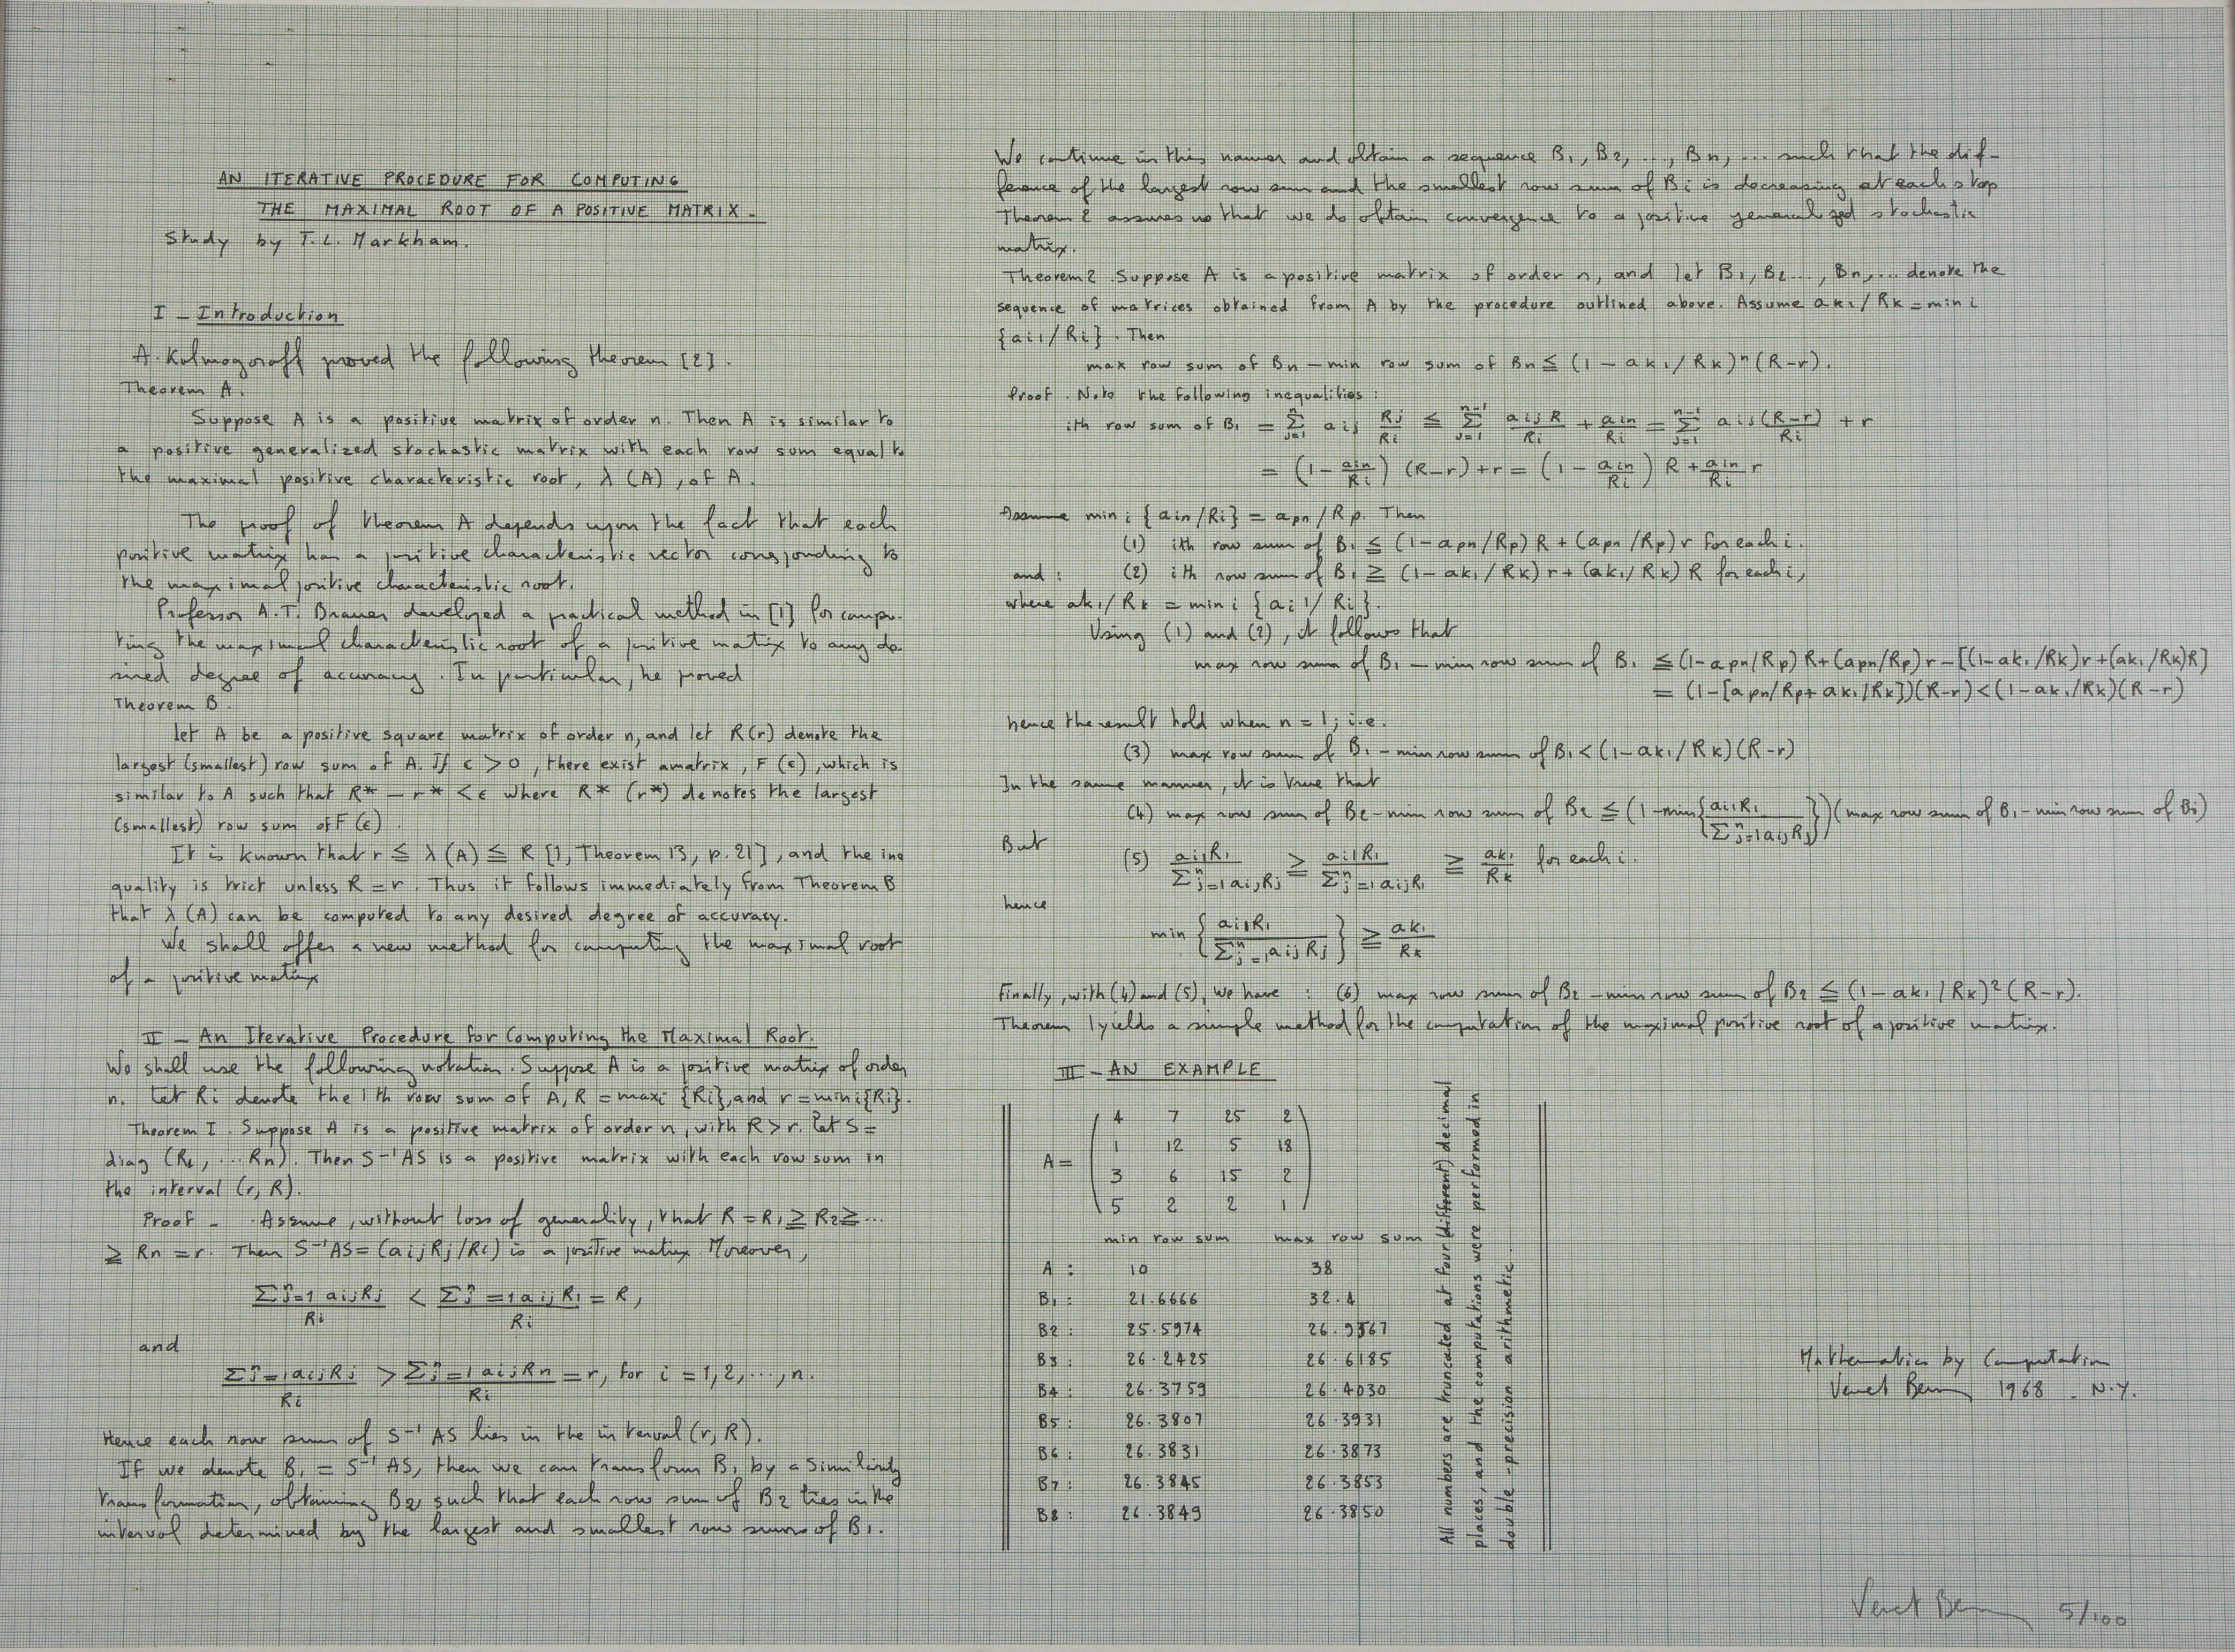 AN ITERATIVE PROCEDURE FOR COMPUTING
THE MAXIMAL ROOT OF A POSITIVE MATRIX -
Study by T.L. Markham.
I - Introduction
A. Kolmogoroff proved the following theorem [2].
Theorem A.
Suppose A is a positive matrix of order n. Then A is similar to
a positive generalized stochastic matrix with each row sum equal to
the maximal positive characteristic root, λ (A), of A.
The proof of theorem A depends upon the fact that each
positive matrix has a positive characteristic vector corresponding to
the maximal positive characteristic root.
Professor A.T. Brauer developed a practical method in [1] for compu-
ting the maximal characteristic root of a positive matrix to any de-
sired degree of accuracy. In particular, he proved
Theorem B.
let A be a positive square matrix of order n, and let R(r) denote the
largest (smallest) row sum of A. If ϵ > 0, there exist amatrix, F (ϵ), which is
similar to A such that R* - r* < ϵ where R* (r*) denotes the largest
(smallest) row sum of F (ϵ).
It is known that r ≦ λ (A) ≦ R [1, Theorem 13, p. 21], and the ine
quality is trict unless R = r. Thus it follows immediately from Theorem B
that λ (A) can be computed to any desired degree of accuracy.
We shall offer a new method for computing the maximal root
of a positive matrix
II - An Iterative Procedure for Computing the Maximal Root.
We shall use the following notation. Suppose A is a positive matrix of order
n. Let Ri denote the i th row sum of A, R = maxi {Ri}, and r = mini{Ri}.
Theorem I. Suppose A is a positive matrix of order n, with R > r. Let S =
diag (R1, ... Rn). Then S⁻¹AS is a positive matrix with each row sum in
the interval (r, R).
Proof - . Assume, without loss of generality, that R = R1 ≧ R2 ≧ ...
≧ Rn = r. Then S⁻¹AS = (aijRj/Ri) is a positive matrix. Moreover,
Σⁿj=1 aijRj / Ri < Σⁿj=1 aijR1 / Ri = R,
and
Σⁿj=1 aijRj / Ri > Σⁿj=1 aijRn / Ri = r, for i = 1,2,...,n.
Hence each row sum of S⁻¹AS lies in the interval (r, R).
If we denote B1 = S⁻¹AS, then we can transform B1 by a similarity
transformation, obtaining B2, such that each row sum of B2 lies in the
interval determined by the largest and smallest row sums of B1.
We continue in this manner and obtain a sequence B1, B2, ..., Bn, ... such that the dif-
ference of the largest row sum and the smallest row sum of Bi is decreasing at each stop
Theorem 2 assures us that we do obtain convergence to a positive generalized stochastic
matrix.
Theorem 2. Suppose A is a positive matrix of order n, and let B1, B2..., Bn,... denote the
sequence of matrices obtained from A by the procedure outlined above. Assume ak1/Rk = min i
{ai1/Ri}. Then
max row sum of Bn - min row sum of Bn ≦ (1 - ak1/Rk)ⁿ(R-r).
Proof. Note the following inequalities:
ith row sum of B1 = Σⁿj=1 aij Rj/Ri ≦ Σⁿ⁻¹j=1 aijR/Ri + ain/Ri = Σⁿ⁻¹j=1 aij(R-r)/Ri + r
= (1 - ain/Ri) (R-r) + r = (1 - ain/Ri) R + ain/Ri r
Assume min i {ain/Ri} = apn/Rp. Then
(1) ith row sum of B1 ≦ (1-apn/Rp) R + (apn/Rp) r for each i.
and : (2) ith row sum of B1 ≧ (1-ak1/Rk) r + (ak1/Rk) R for each i,
where ak1/Rk = min i {ai1/Ri}.
Using (1) and (2), it follows that
max row sum of B1 - min row sum of B1 ≦ (1-apn/Rp) R + (apn/Rp) r - [(1-ak1/Rk)r + (ak1/Rk)R]
= (1-[apn/Rp + ak1/Rk])(R-r) < (1-ak1/Rk)(R-r)
hence the result hold when n = 1; i.e.
(3) max row sum of B1 - min row sum of B1 < (1-ak1/Rk)(R-r)
In the same manner, it is true that
(4) max row sum of B2 - min row sum of B2 ≦ (1-min{ai1R1 / Σⁿj=1aijRj})(max row sum of B1 - min row sum of B1)
But
(5) ai1R1 / Σⁿj=1aijRj ≧ ai1R1 / Σⁿj=1aijR1 ≧ ak1/Rk for each i.
hence
min {ai1R1 / Σⁿj=1aijRj} ≧ ak1/Rk
Finally, with (4) and (5), we have : (6) max row sum of B2 - min row sum of B2 ≦ (1-ak1/Rk)²(R-r).
Theorem 1 yields a simple method for the computation of the maximal positive root of a positive matrix.
III - AN EXAMPLE
A =
4 7 25 2
1 12 5 18
3 6 15 2
5 2 2 1
min row sum max row sum
A : 10 38
B1 : 21.6666 32.4
B2 : 25.5974 26.9367
B3 : 26.2425 26.6185
B4 : 26.3759 26.4030
B5 : 26.3807 26.3931
B6 : 26.3831 26.3873
B7 : 26.3845 26.3853
B8 : 26.3849 26.3850
All numbers are truncated at four (different) decimal
places, and the computations were performed in
double-precision arithmetic.
Mathematics by Computation
Venet Bernar 1968 - N.Y.
Venet Bernar 5/100